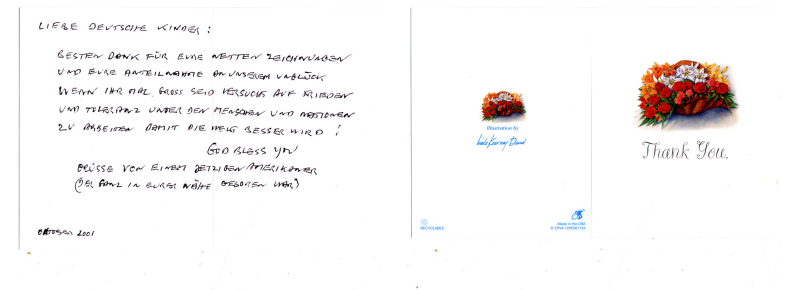 LIEBE DEUTSCHE KINDER:
BESTEN DANK FÜR EURE NETTEN ZEICHNUNGEN
UND EURE ANTEILNAHME AN UNSEREM UNGLÜCK
WENN IHR MAL GROSS SEID VERSUCHT AUF FRIEDEN
UND TOLERANZ UNTER DEN MENSCHEN UND NATIONEN
ZU ARBEITEN DAMIT DIE WELT BESSER WIRD!
GOD BLESS YOU
GRÜSSE VON EINEM JETZIGEN AMERIKANER
(DER GANZ IN EURER NÄHE GEBOREN WAR)
OKTOBER 2001
Illustration by
RECYCLABLE
Made in the USA
Thank You.